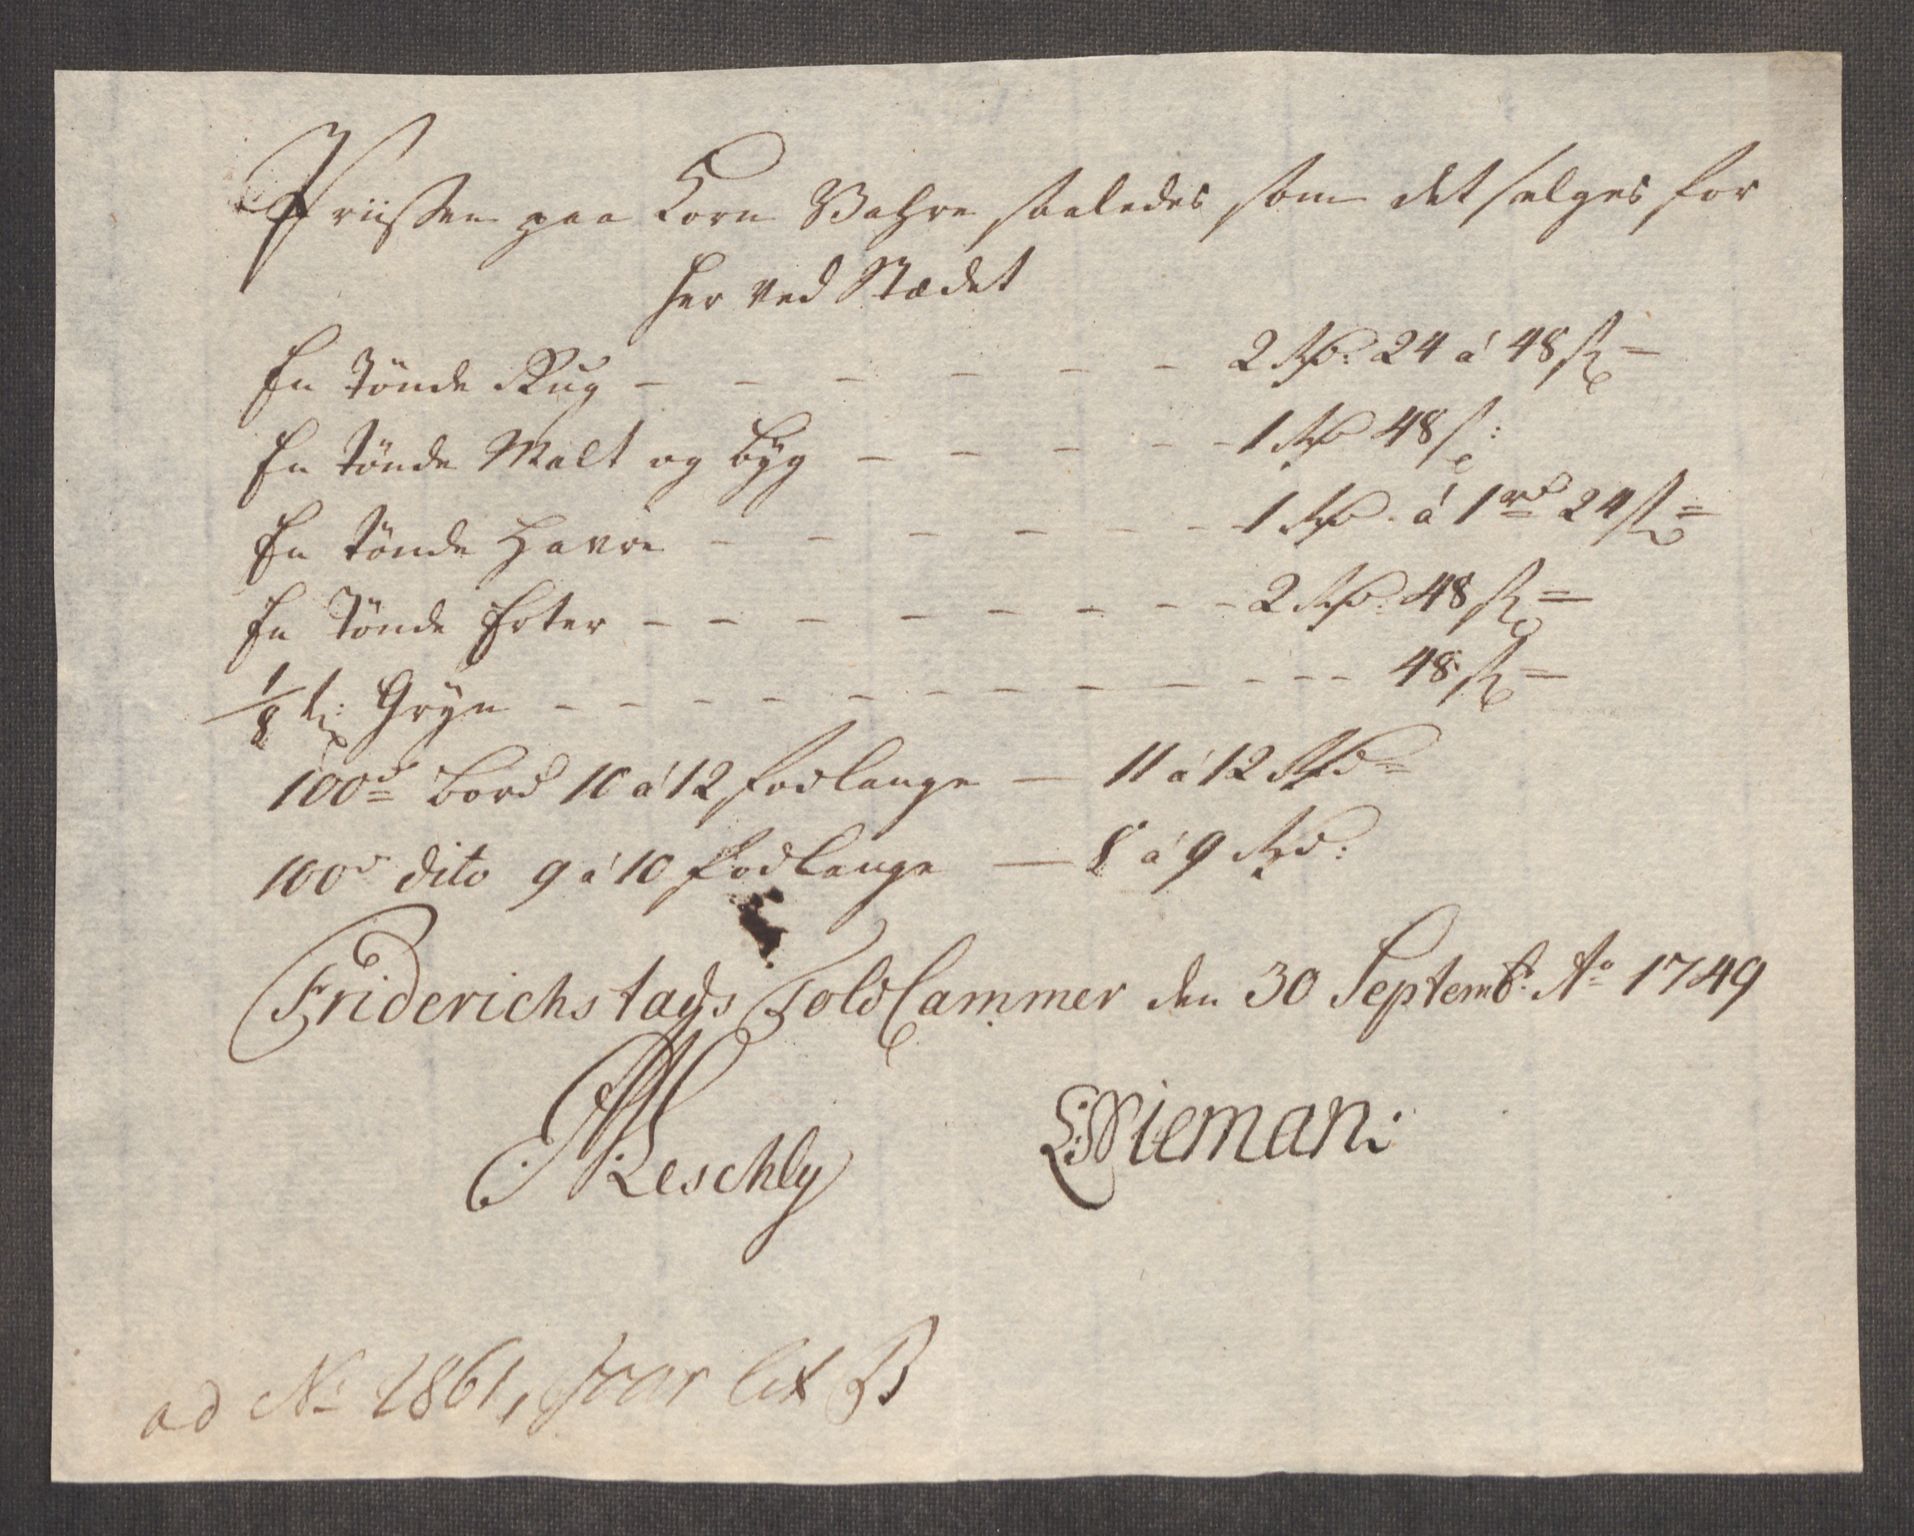 Priissen paa Korn Vahre saaledes som det selges for
her ved Stædet
En Tönde Rug - - - - - - 2 Rd: 24 á 48 s
En tönde Malt og byg - - - - - 1 Rd 48 s:
En tönde Havre - - - - - - 1 Rd. á 1 rd 24 s
En Tönde Erter - - - - - - - 2 Rd: 48 s
1/8 t: Gryn - - - - - - - - - - 48 s
100d bord 10 á 12 fod lange - 11 á 12 Rd
100d dito 9 á 10 fod lange - 8 á 9 Rd:
Friderichstads Told Cammer den 30 Septembr: Ao 1749
Leschly L: Nieman:
ad No 1861, lit B